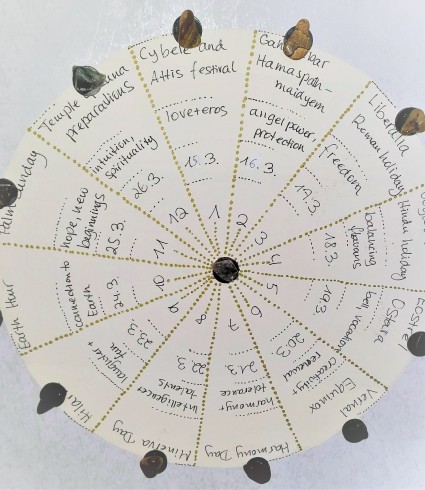 Cybele and
Attis festival
love+eros
15.3.
1
Hamaspath-
maidyem
angel power,
protection
16.3.
2
Liberalia
Roman holiday
freedom
17.3.
3
Hindu holiday
balancing
18.3.
4
Eostre
Ostara
19.3.
5
Vernal
Equinox
creativity+
renewal
20.3.
6
Harmony Day
harmony+
tolerance
21.3.
7
Minerva Day
intelligence+
talents
22.3.
8
laughter+
fun
23.3.
9
Earth Hour
connection to
Earth
24.3.
10
hope, new
beginnings
25.3.
11
Temple
preparations
intuition,
spirituality
26.3.
12